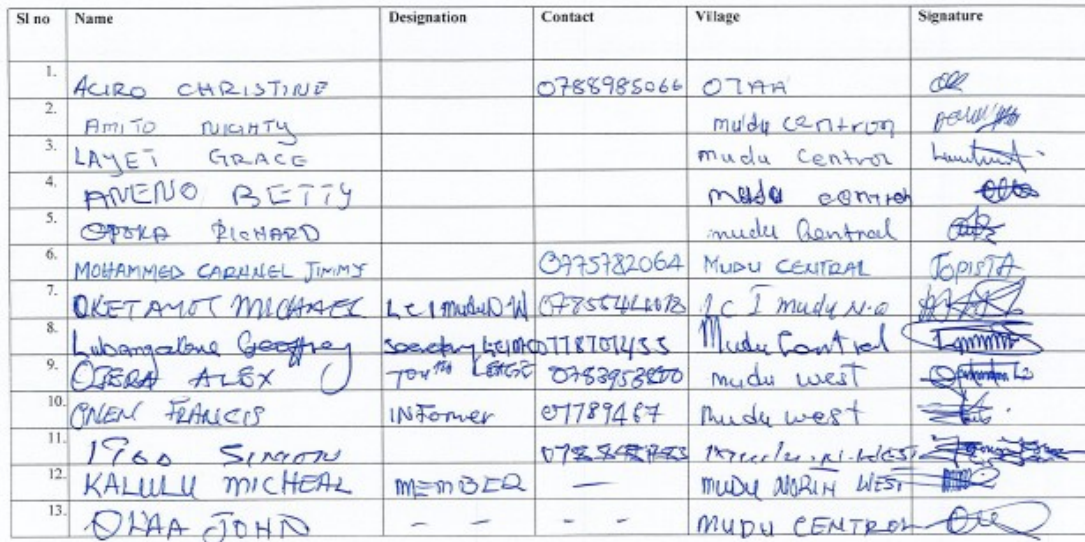 Sl no Name Designation Contact Village Signature
1. ACIRO CHRISTINE 0788985066 OTAA
2. AMITO NIGHTY mudu centron
3. LAYET GRACE mudu Centrol
4. ANENO BETTY mudu
5. OPOKA RICHARD mudu Central
6. MOHAMMED CARNNEL JIMMY 0775782064 MUDU CENTRAL JOPISTA
7. OKETAYOT MICHAEL LC I mudu N.W LC I mudu N.O
8. Geoffrey Mudu Contral
9. OJERA ALEX mudu west
10. ONEN FRANCIS INFormer 01789467 Mudu west
11. SIMON WEST
12. KALULU MICHEAL MEMBER — MUDU NORTH WEST
13. OLAA JOHN - - - - MUDU CENTROL